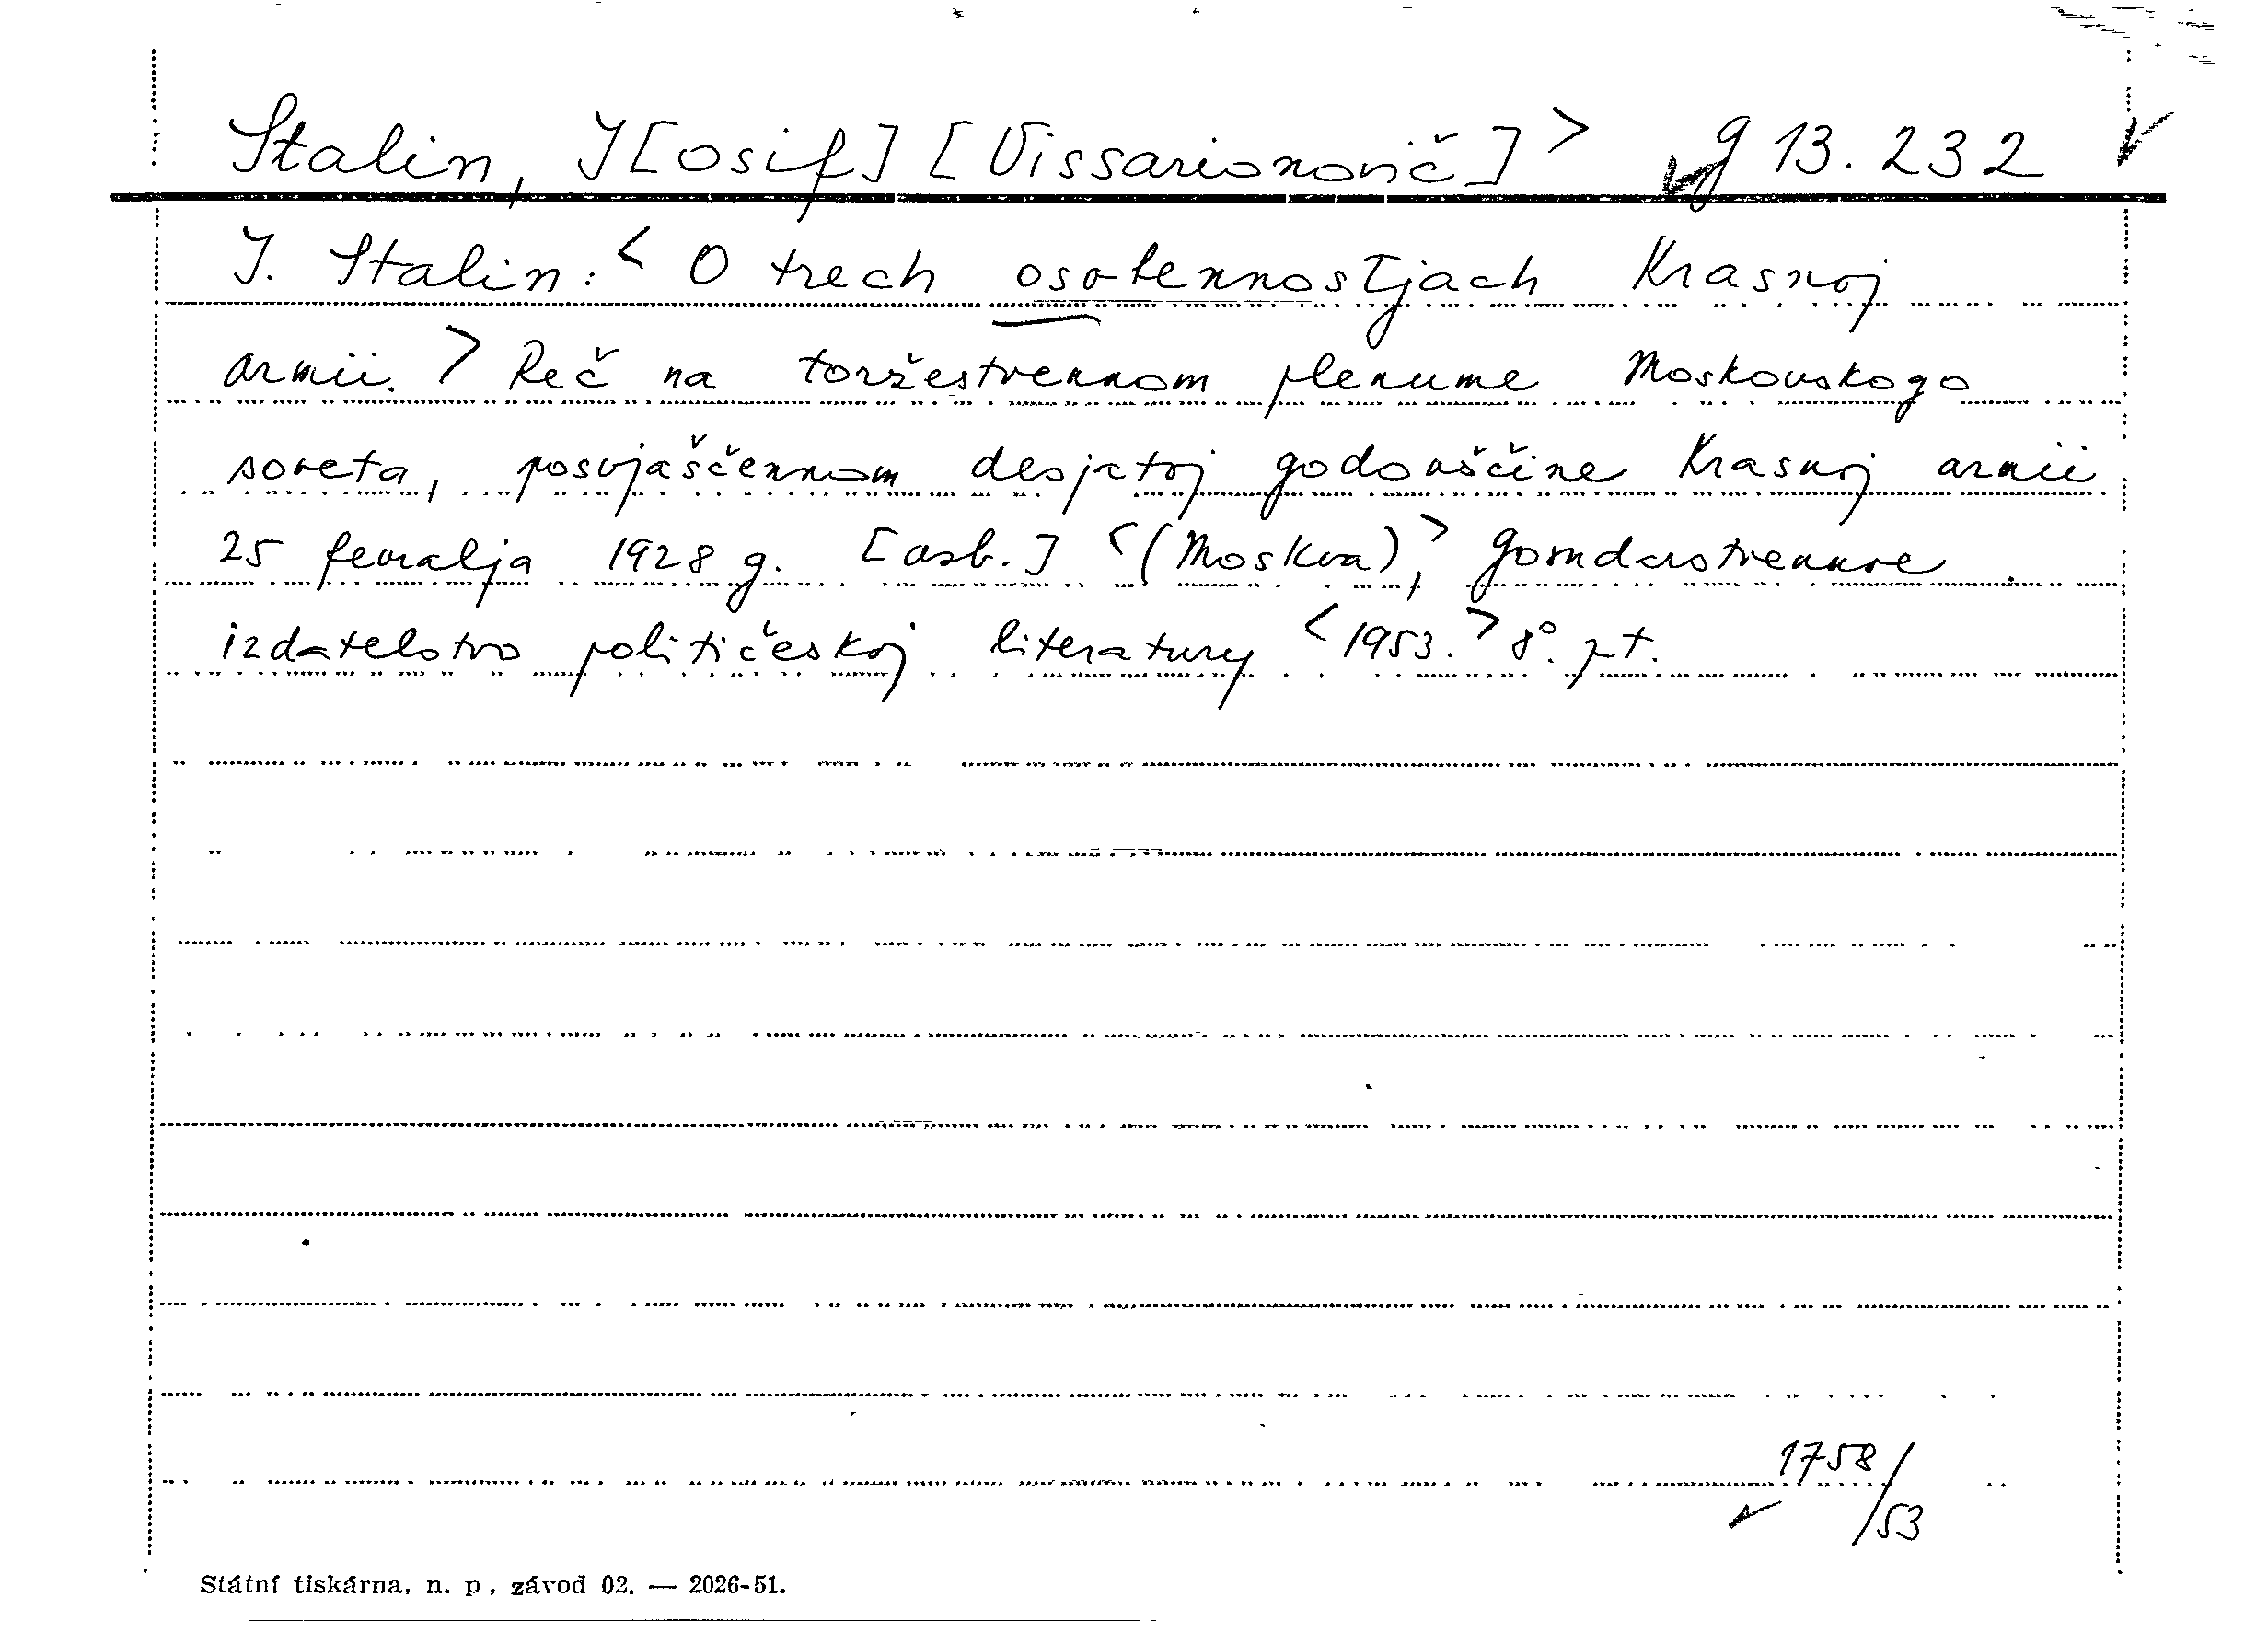 Stalin, J[osif] [Vissarionovič] > g 13.232
J. Stalin: < O trech osobennostjach Krasnoj
armii. > Reč na toržestvennom plenume Moskovskogo
soveta, posvjaščennom desjatoj godovščine Krasnoj armii
25 fevralja 1928 g. [asb.] < (Moskva), > Gosudarstvennoe
izdatelstvo političeskoj literatury < 1953. > 8°. pt.
1758/
/53
Státní tiskárna, n. p., závod 02. — 2026-51.